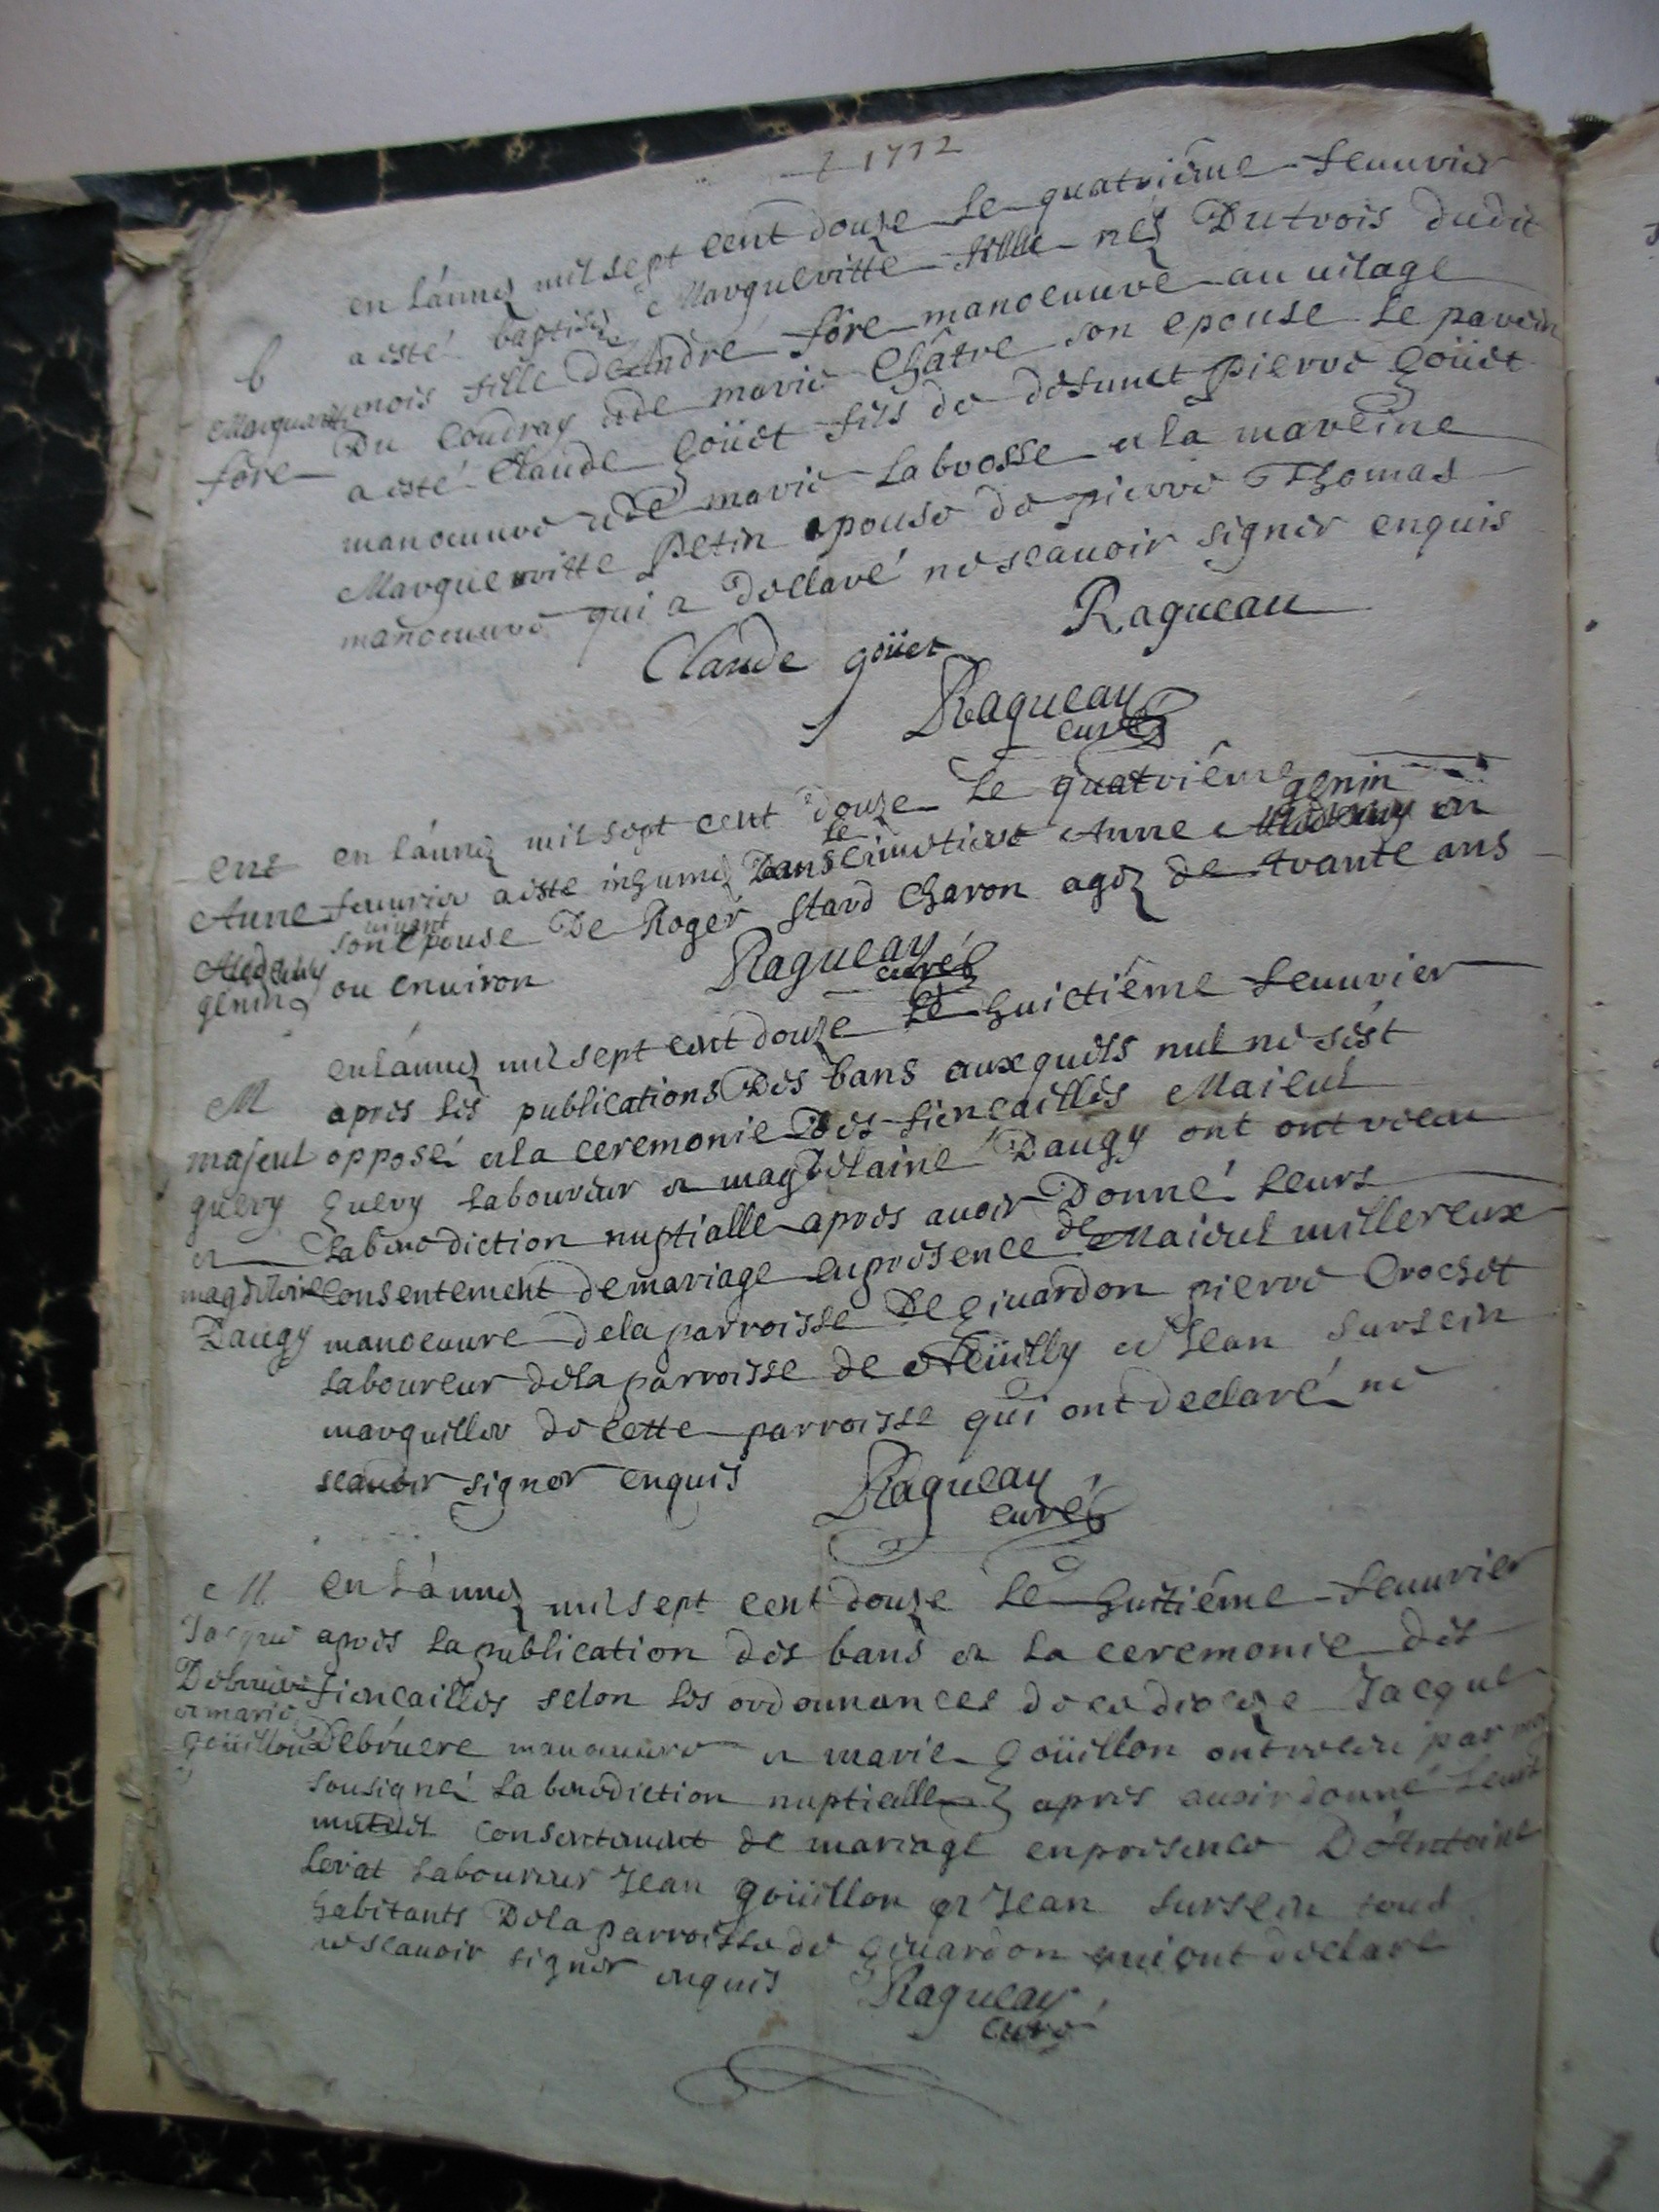 1712
en l'année mil sept cent douze le quatriéme feuurier
b a esté baptisée Margueritte fille née Du trois dudit
Marguerite mois fille de André fôre manoeuure au uilage
fôre Du Coudray et de marie Châtre son epouse le parein
a esté Claude Goüet fils de defunct pierre Goüet
manoeuure et de marie Labrosse et la mareine
Margueritte petin epouse de pierre Thomas
manoeuure qui a declaré ne scauoir signer enquis
Claude goüet Ragueau
Ragueau
curé
ent en l'année mil sept cent douze le quatriéme
Anne feuurier a esté inhumée Dans le cimetiere Anne genin en
son uiuant epouse De Roger Stard Charon agée de trante ans
genin ou enuiron Ragueau
curé
en l'année mil sept cent douze le huictiéme feuurier
M apres les publications Des bans auxquels nul ne s'est
majeul opposé et la ceremonie Des fiencailles Maieul
guery guery laboureur et magdelaine Daugy ont ont receu
et la benediction nuptialle apres auoir Donné leurs
magdelaine consentement de mariage en presence de Maieul millereux
Daugy manoeuure de la parroisse De Giuardon pierre Crochet
laboureur de la parroisse de Neüilly et Jean Sursein
marguiller de cette parroisse qui ont declaré ne
scauoir signer enquis Ragueau
curé
M en l'année mil sept cent douze le huitiéme feuurier
Jacque apres la publication des bans et la ceremonie des
Debruere fiencailles selon les ordonnances de ce diocese Jacque
et marie Debruere manoeuure et marie Goüillon ont receu par moy
goüillon sousigné la benediction nuptialle apres auoir donné leurs
mutuel consentement de mariage en presence D'Antoine
Leriat laboureur Jean goüillon et Jean Sursein tous
habitants De la parroisse de Giuardon qui ont declaré
ne scauoir signer enquis Ragueau
curé